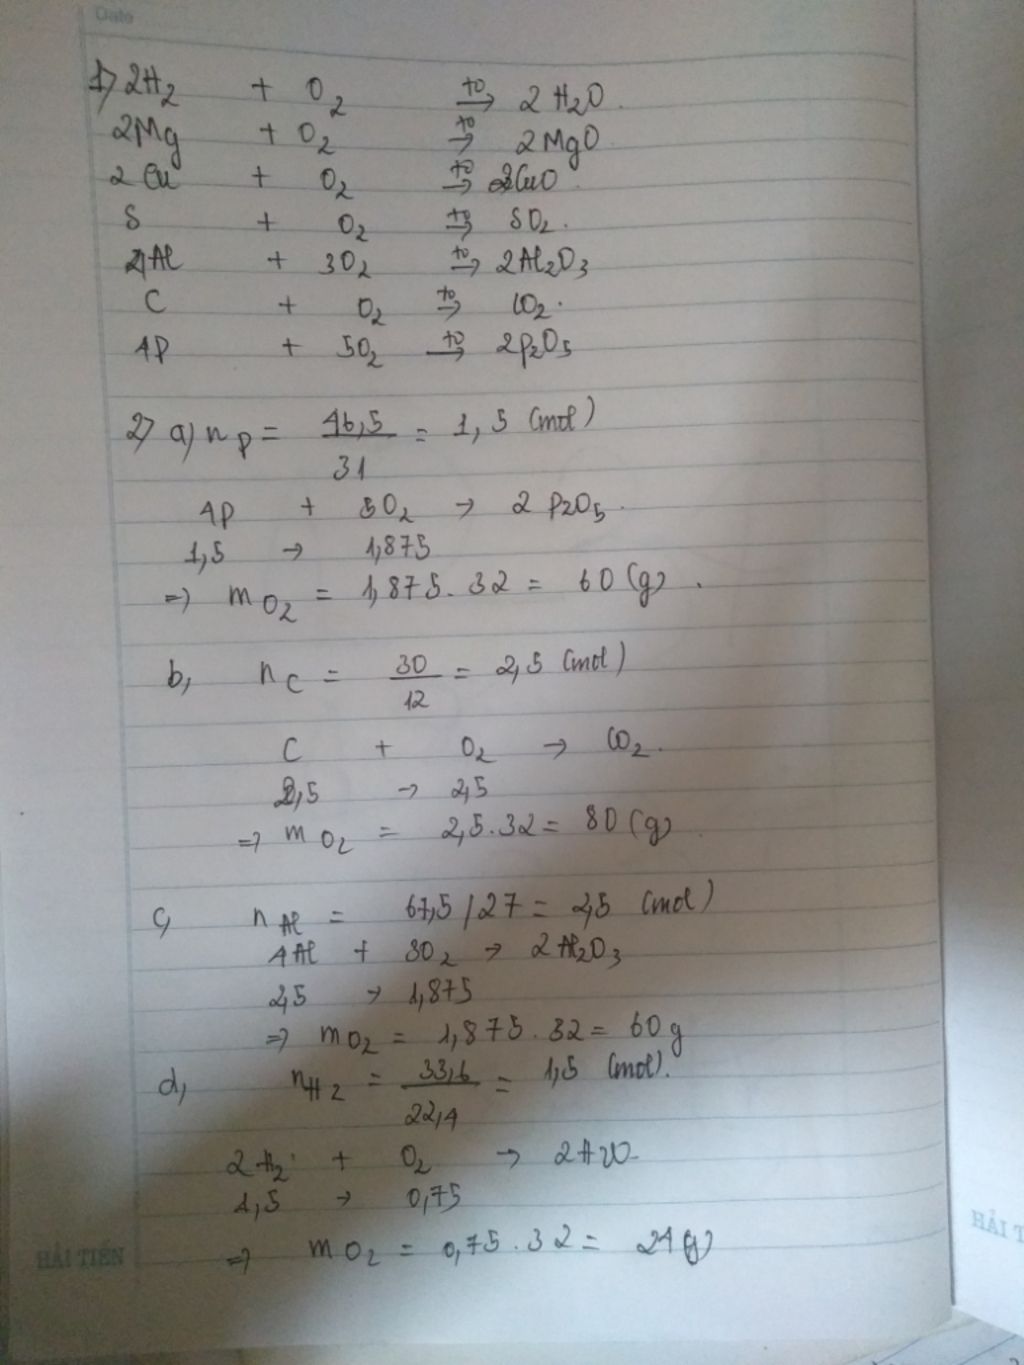 Date
1) 2H2 + O2 to→ 2H2O.
2Mg + O2 to→ 2MgO
2Cu + O2 to→ 2CuO.
S + O2 to→ SO2.
4Al + 3O2 to→ 2Al2O3
C + O2 to→ CO2.
4P + 5O2 to→ 2P2O5
2) a) nP = 46,5/31 = 1,5 (mol)
4P + 5O2 → 2P2O5.
1,5 → 1,875
=> mO2 = 1,875.32 = 60 (g).
b, nC = 30/12 = 2,5 (mol)
C + O2 → CO2.
2,5 → 2,5
=> mO2 = 2,5.32 = 80 (g)
c, nAl = 67,5/27 = 2,5 (mol)
4Al + 3O2 → 2Al2O3
2,5 → 1,875
=> mO2 = 1,875.32 = 60g
d, nH2 = 33,6/22,4 = 1,5 (mol).
2H2 + O2 → 2H2O
1,5 → 0,75
=> mO2 = 0,75.32 = 24 (g)
HẢI TIẾN
HẢI T